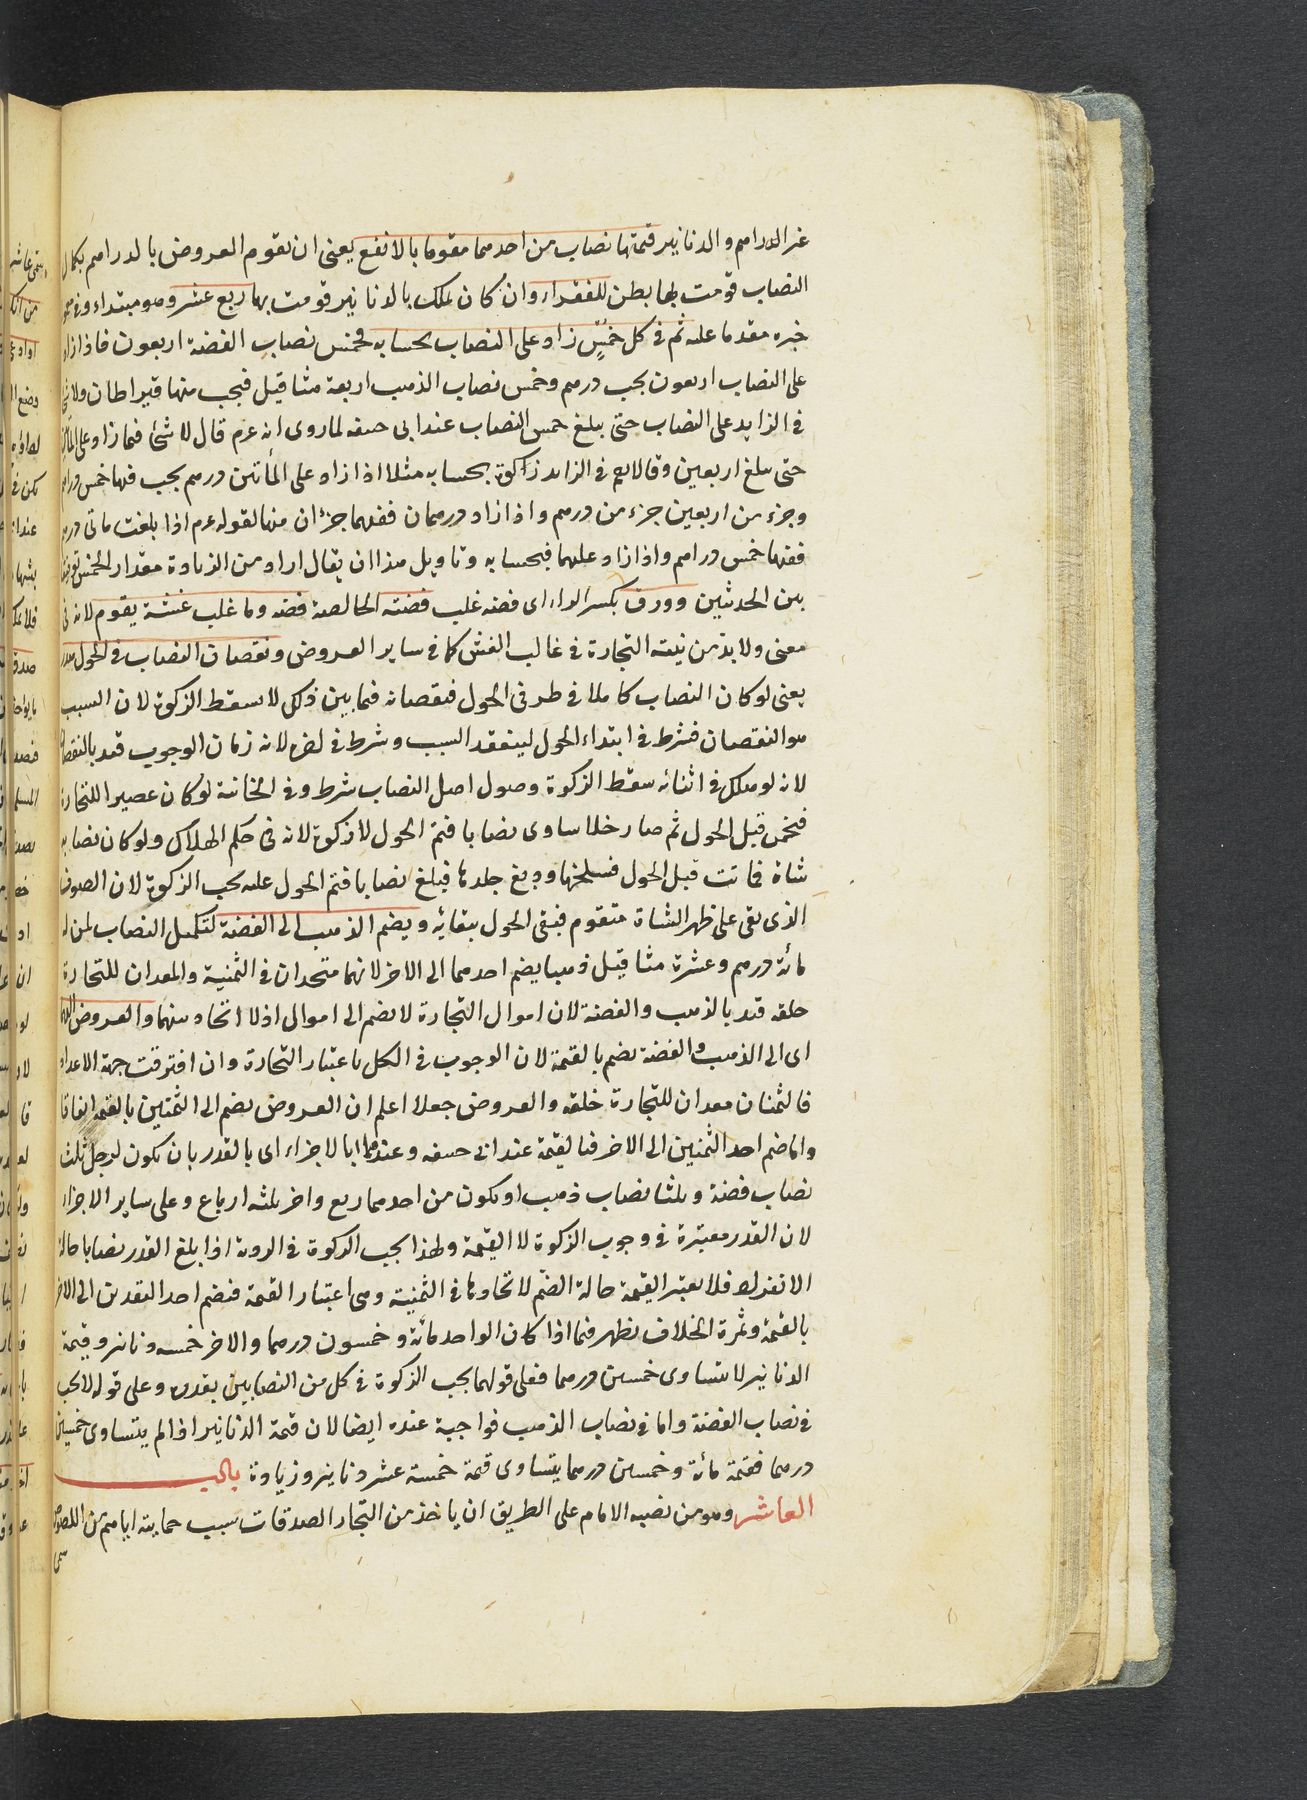 غير الدراهم والدنانير قيمتها نصاب من احدهما مقوما بالانفع يعنى ان يقوم العروض بالدراهم بكمال
النصاب قومت بها نظرا للفقراء وان كان يملك بالدنانير قومت بها ربع عشر وهو مبتداء وفى عرو
خبره مقدما عليه ثم فى كل خمسٍ زاد على النصاب بحسابه فخمس نصاب الفضة اربعون فاذا زاد
على النصاب اربعون يجب درهم وخمس نصاب الذهب اربعة مثاقيل فيجب منها قيراطان ولا شئ
فى الزايد على النصاب حتى يبلغ خمس النصاب عند ابى حنيفه لما روى انه عم قال لا شئ فيما زاد على المأتين
حتى يبلغ اربعين وقالا يجب فى الزائد زكوة بحسابه مثلا اذا زاد على المأتين درهم يجب فيها خمس دراهم
وجزء من اربعين جزء من درهم واذا زاد درهمان ففيهما جزءان منها لقوله عم اذا بلغت مأتى درهم
ففيها خمس دراهم واذا زاد عليهما فبحسابه وتاويل هذا ان يقال اراد من الزيادة مقدار الخمس توفيقا
بين الحديثين وورق بكسر الراء اى فضة غلب فضته الخالصة فضه وما غلب غشه يقوم لانه فى
معنى ولابد من نية التجارة فى غالب الغش كما فى ساير العروض ونقصان النصاب فى الحول هدر
يعنى لو كان النصاب كاملا فى طرفى الحول فنقصانه فيما بين ذلك لا يسقط الزكوة لان السبب
هو النقصان فشرط فى ابتداء الحول لينعقد السبب وشرط فى اخره لانه زمان الوجوب قيد بالنقصان
لانه لو هلك فى اثنائه سقط الزكوة وصول اصل النصاب شرط وفى الخانية لو كان عصيرا للتجارة
فتخمر قبل الحول ثم صار خلا ساوى نصابا فتم الحول لا زكوة لانه فى حكم الهلاك ولو كان نصابه
شاة فماتت قبل الحول فسلخها ودبغ جلدها فبلغ نصابا فتم الحول عليه يجب الزكوة لان الصوف
الذى بقى على ظهر الشاة متقوم فبقى الحول ببقائه ويضم الذهب الى الفضة لتكميل النصاب لمن له
مأئة درهم وعشرة مثاقيل ذهبا يضم احدهما الى الاخر لانهما متحدان فى الثمنية والمعدان للتجارة
خلقه قيد بالذهب والفضة لان اموال التجارة لا يضم الى اموال اذ لا اتحاد بينهما والعروض اليهما
اى الى الذهب والفضة يضم بالقيمة لان الوجوب فى الكل باعتبار التجارة وان افترقت جهة الاعداد
فالثمنان معدان للتجارة خلقة والعروض جعلا اعلم ان العروض يضم الى الثمنين بالقيمة اتفاقا
واما ضم احد الثمنين الى الاخر فبالقيمة عند ابى حنيفه وعندهما بالاجزاء اى بالقدر بان يكون لرجل ثلث
نصاب فضة وثلثا نصاب ذهب او يكون من احدهما ربع واخر ثلثه ارباع وعلى ساير الاجزاء
لان القدر معتبرة فى وجوب الزكوة لا القيمة ولهذا يجب الزكوة فى الردية اذا بلغ القدر نصابا حالة
الانفراد فلا يعتبر القيمة حالة الضم لاتحادهما فى الثمنية وهى اعتبار القيمة فيضم احد النقدين الى الاخر
بالقيمة وثمرة الخلاف يظهر فيما اذا كان الواحد مائة وخمسون درهما والاخر خمسه دنانير وقيمة
الدنانير لا يتساوى خمسين درهما فعلى قولهما يجب الزكوة فى كل من النصابين بقدره وعلى قوله لا يجب
فى نصاب الفضة واما فى نصاب الذهب فواجبة عنده ايضا لان قيمة الدنانير اذا لم يتساوى خمسين
درهما فقيمة مأئة وخمسين درهما يتساوى قيمة خمسة عشر دنانير وزيادة باب
العاشر وهو من نصبه الامام على الطريق ان ياخذ من التجار الصدقات بسبب حمايته اياهم من اللصوص